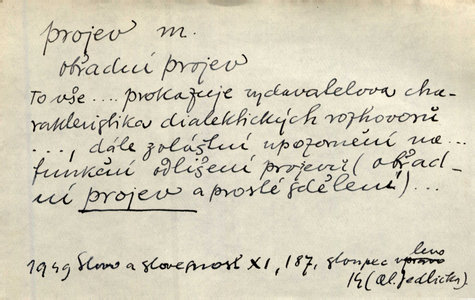 projev m.
obřadní projev
To vše .... prokazuje vydavatelova cha-
rakteristika dialektických rozhovorů
..., dále zvláštní upozornění na ...
funkční odlišení projevů (obřad-
ní projev a prosté sdělení) ...
1949 Slovo a slovesnost XI, 187, sloupec vpravo levo
14 (Al. Jedlička)